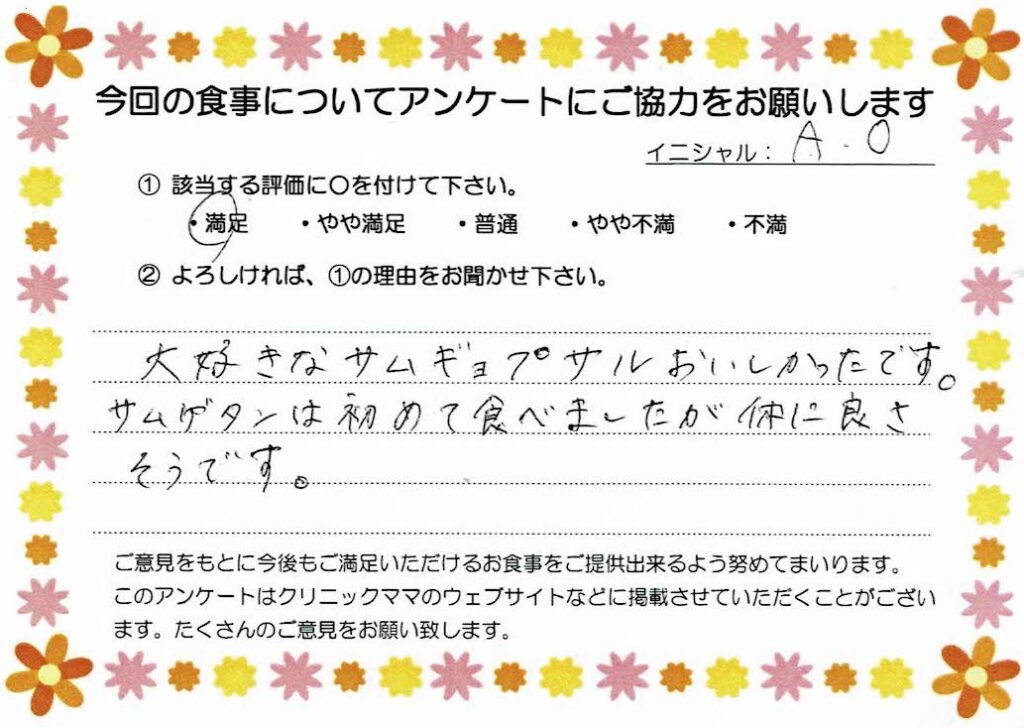 今回の食事についてアンケートにご協力をお願いします
イニシャル： A.O
① 該当する評価に〇を付けて下さい。
・満足 ・やや満足 ・普通 ・やや不満 ・不満
② よろしければ、①の理由をお聞かせ下さい。
大好きなサムギョプサルおいしかったです。
サムゲタンは初めて食べましたが体に良さ
そうです。
ご意見をもとに今後もご満足いただけるお食事をご提供出来るよう努めてまいります。
このアンケートはクリニックママのウェブサイトなどに掲載させていただくことがござい
ます。たくさんのご意見をお願い致します。